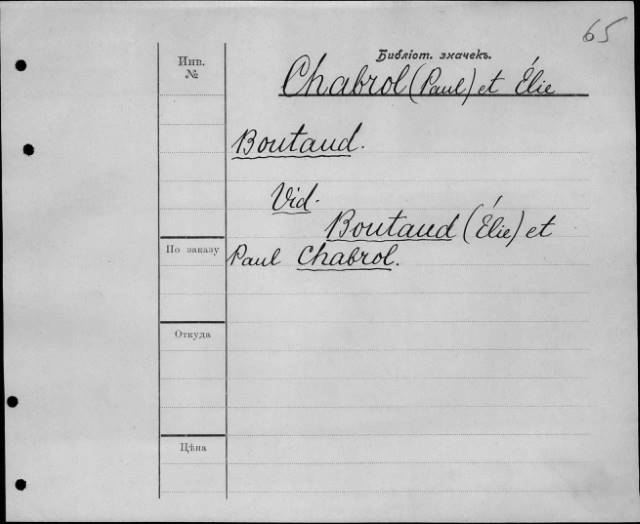 65
Библіот. значекъ.
Инв.
№
Chabrol (Paul) et Élie
Boutaud.
Vid.
Boutaud (Élie) et
По заказу
Paul Chabrol.
Откуда
Цѣна